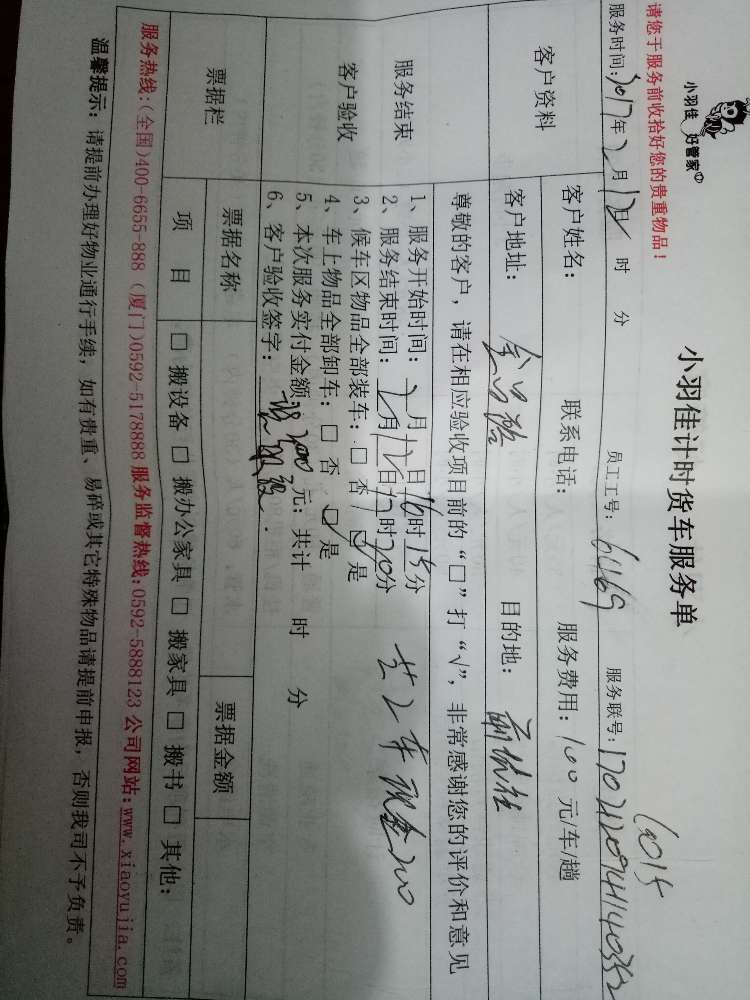 小羽佳 好管家
小羽佳计时货车服务单
请您于服务前收拾好您的贵重物品！
6015
服务时间：2017年2月12日 时 分 员工工号：6469 服务联号：
客户资料
客户姓名： 联系电话： 服务费用：100元/车/趟
客户地址： 目的地：
尊敬的客户，请在相应验收项目前的“□”打“√”，非常感谢您的评价和意见
服务结束
客户验收
1、服务开始时间：2月12日16时15分
2、服务结束时间：2月12日17时20分
3、候车区物品全部装车：□ 否 ☑ 是
4、车上物品全部卸车：□ 否 ☑ 是
5、本次服务实付金额：200元；共计 时 分
6、客户验收签字：
共2车现金200
票据栏
票据名称 票据金额
项 目 □ 搬设备 □ 搬办公家具 □ 搬家具 □ 搬书 □ 其他：
服务热线：(全国)400-6655-888 (厦门)0592-5178888 服务监督热线：0592-5888123 公司网站：www.xiaoyujia.com
温馨提示：请提前办理好物业通行手续，如有贵重、易碎或其它特殊物品请提前申报，否则我司不予负责。